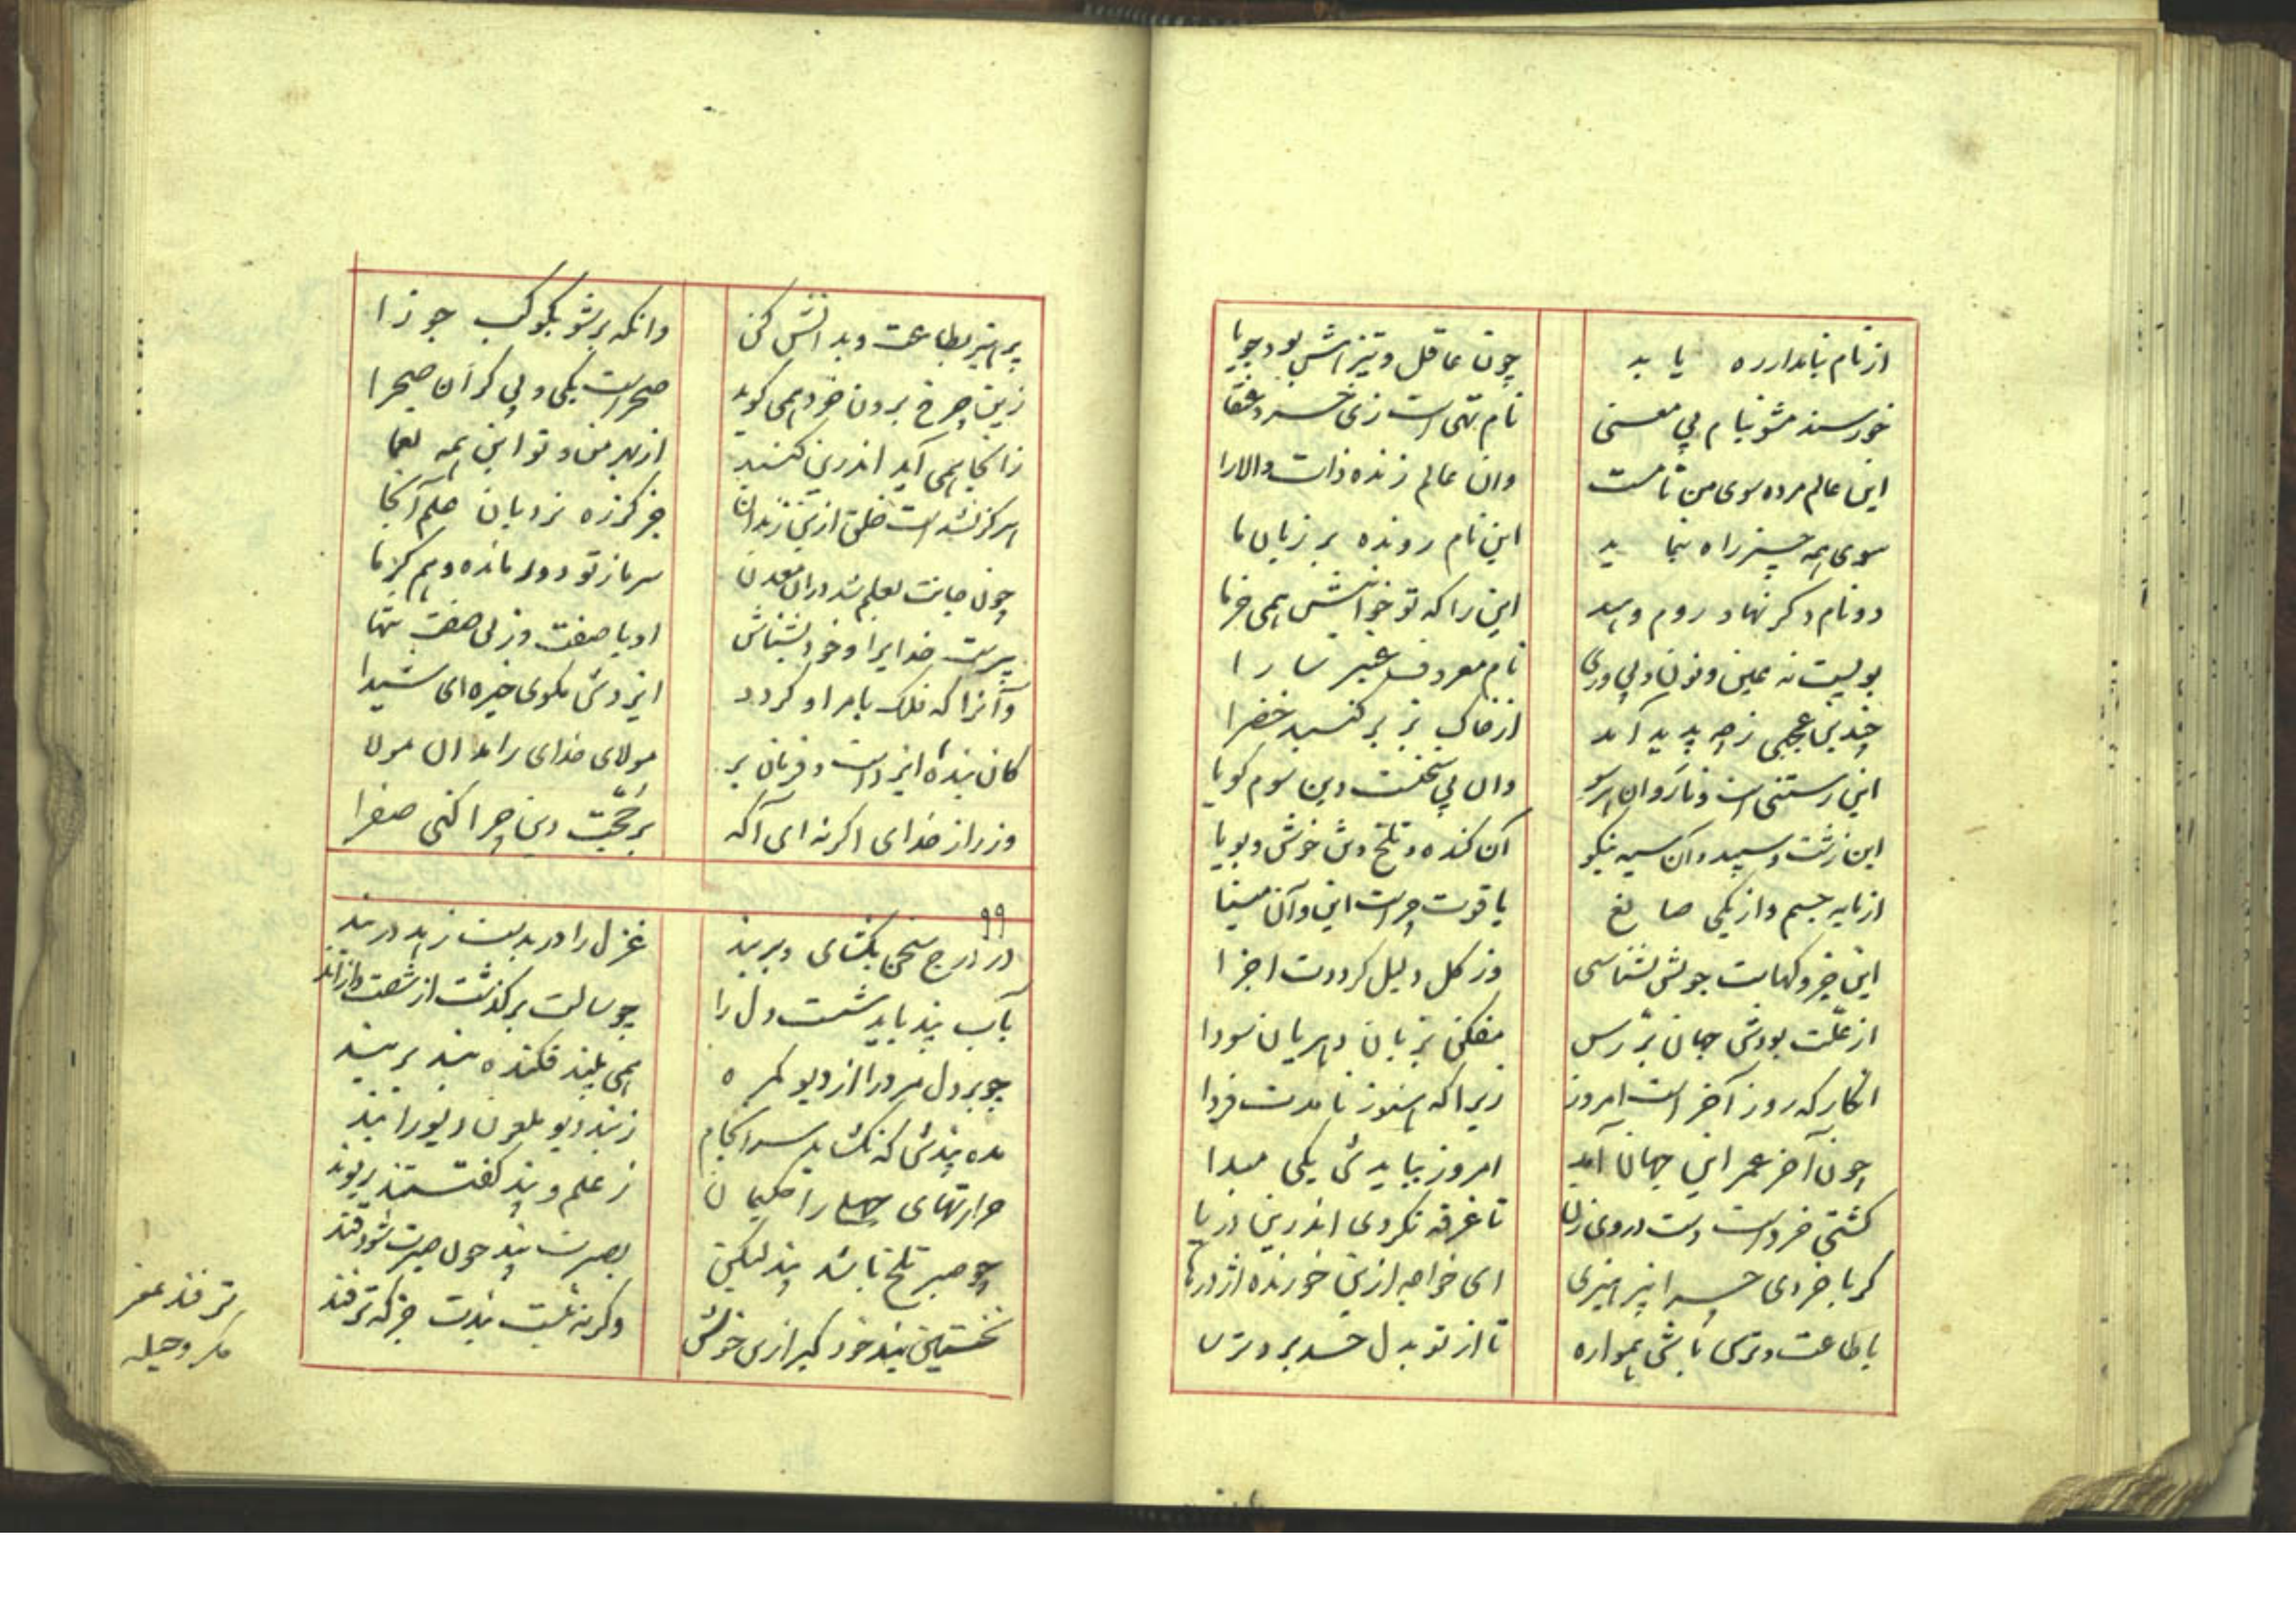 از نام بنامدار ره یابد
چون عاقل و تیزهش بود جویا
خورسند مشو بنام بی معنی
نام تهی است زی خرد عنقا
این عالم مرده سوی من نامست
وان عالم زنده ذات والا را
سوی همه چیز راه بنماید
این نام رونده بر زبان ما
دو نام دگر نهاد روم و هند
این را که تو خوانیش همی خرما
بوییست نه عین و نون و بی و ری
نام معروف عنبر سارا
چندین عجبی ز چه پدید آمد
از خاک بزیر گنبد خضرا
این رستنی است و ناروان هر سو
وان بی سخنست وین سوم گویا
این زشت و سپید و آن سیه نیکو
آن گنده و تلخ وین خوش و بویا
از مایه جسم و از یکی صانع
یاقوت چراست این و آن مینا
این جزو کهاست چونش نشناسی
وز کل دلیل گرددت اجزا
از علت بودش جهان بررس
مفکن بزبان دهریان سودا
انگار که روز آخر است امروز
زیرا که هنوز نامدست فردا
چون آخر عمر این جهان آید
امروز ببایدش یکی مبدا
کشتی خرد است دست در وی زن
تا غرقه نگردی اندرین دریا
گر با خردی چرا نپرهیزی
ای خواجه ازین خورنده اژدرها
با طاعت و ترس باش همواره
تا از تو بدل حسد برد ترسا
پرهیز بطاعت و بدانش کن
وانگه بر شو بکوکب جوزا
زین چرخ برون خرد همی گوید
صحراست یکی و بی کران صحرا
زانجا همی آید اندرین گنبد
از بهر من و تو این همه نعما
هرگز نشد است خلق ازین زندان
جز کز ره نردبان علم آنجا
چون جانت بعلم شد در ان معدن
سرما ز تو دور مانده و هم گرما
بپرست خدایرا و خود بشناس
او با صفت و ز بی صفت تنها
وآنرا که فلک بامر او گردد
ایزدش مگوی خیره ای شیدا
کان بنده ایزد است و فرمان بر
مولای خدای را مدان مولا
وز راز خدای اگر نه ای آگه
بر حُجّت دین چرا کنی صفرا
۹۹
در درج سخن بگشای و بر بند
غزل را در بدست زهد در بند
بآب پند باید شست دل را
چو سالت بر گذشت از شصت و از اند
چو بر دل مرد را از دیو گمره
همی بیند فکنده بند بر بند
مده پندش که نگشاید سرانجام
ز بند دیو ملعون دیو را بند
حرارتهای جهلی را حکیمان
ز علم و پند گفتستند ریوند
چو صبر تلخ باشد پند لیکن
بصبرت پند چون صبرت شود قند
نخستین پند خود گیر از تن خویش
وگرنه نیست پندت جز که ترفند
ترفند یعنی
مکر و حیله